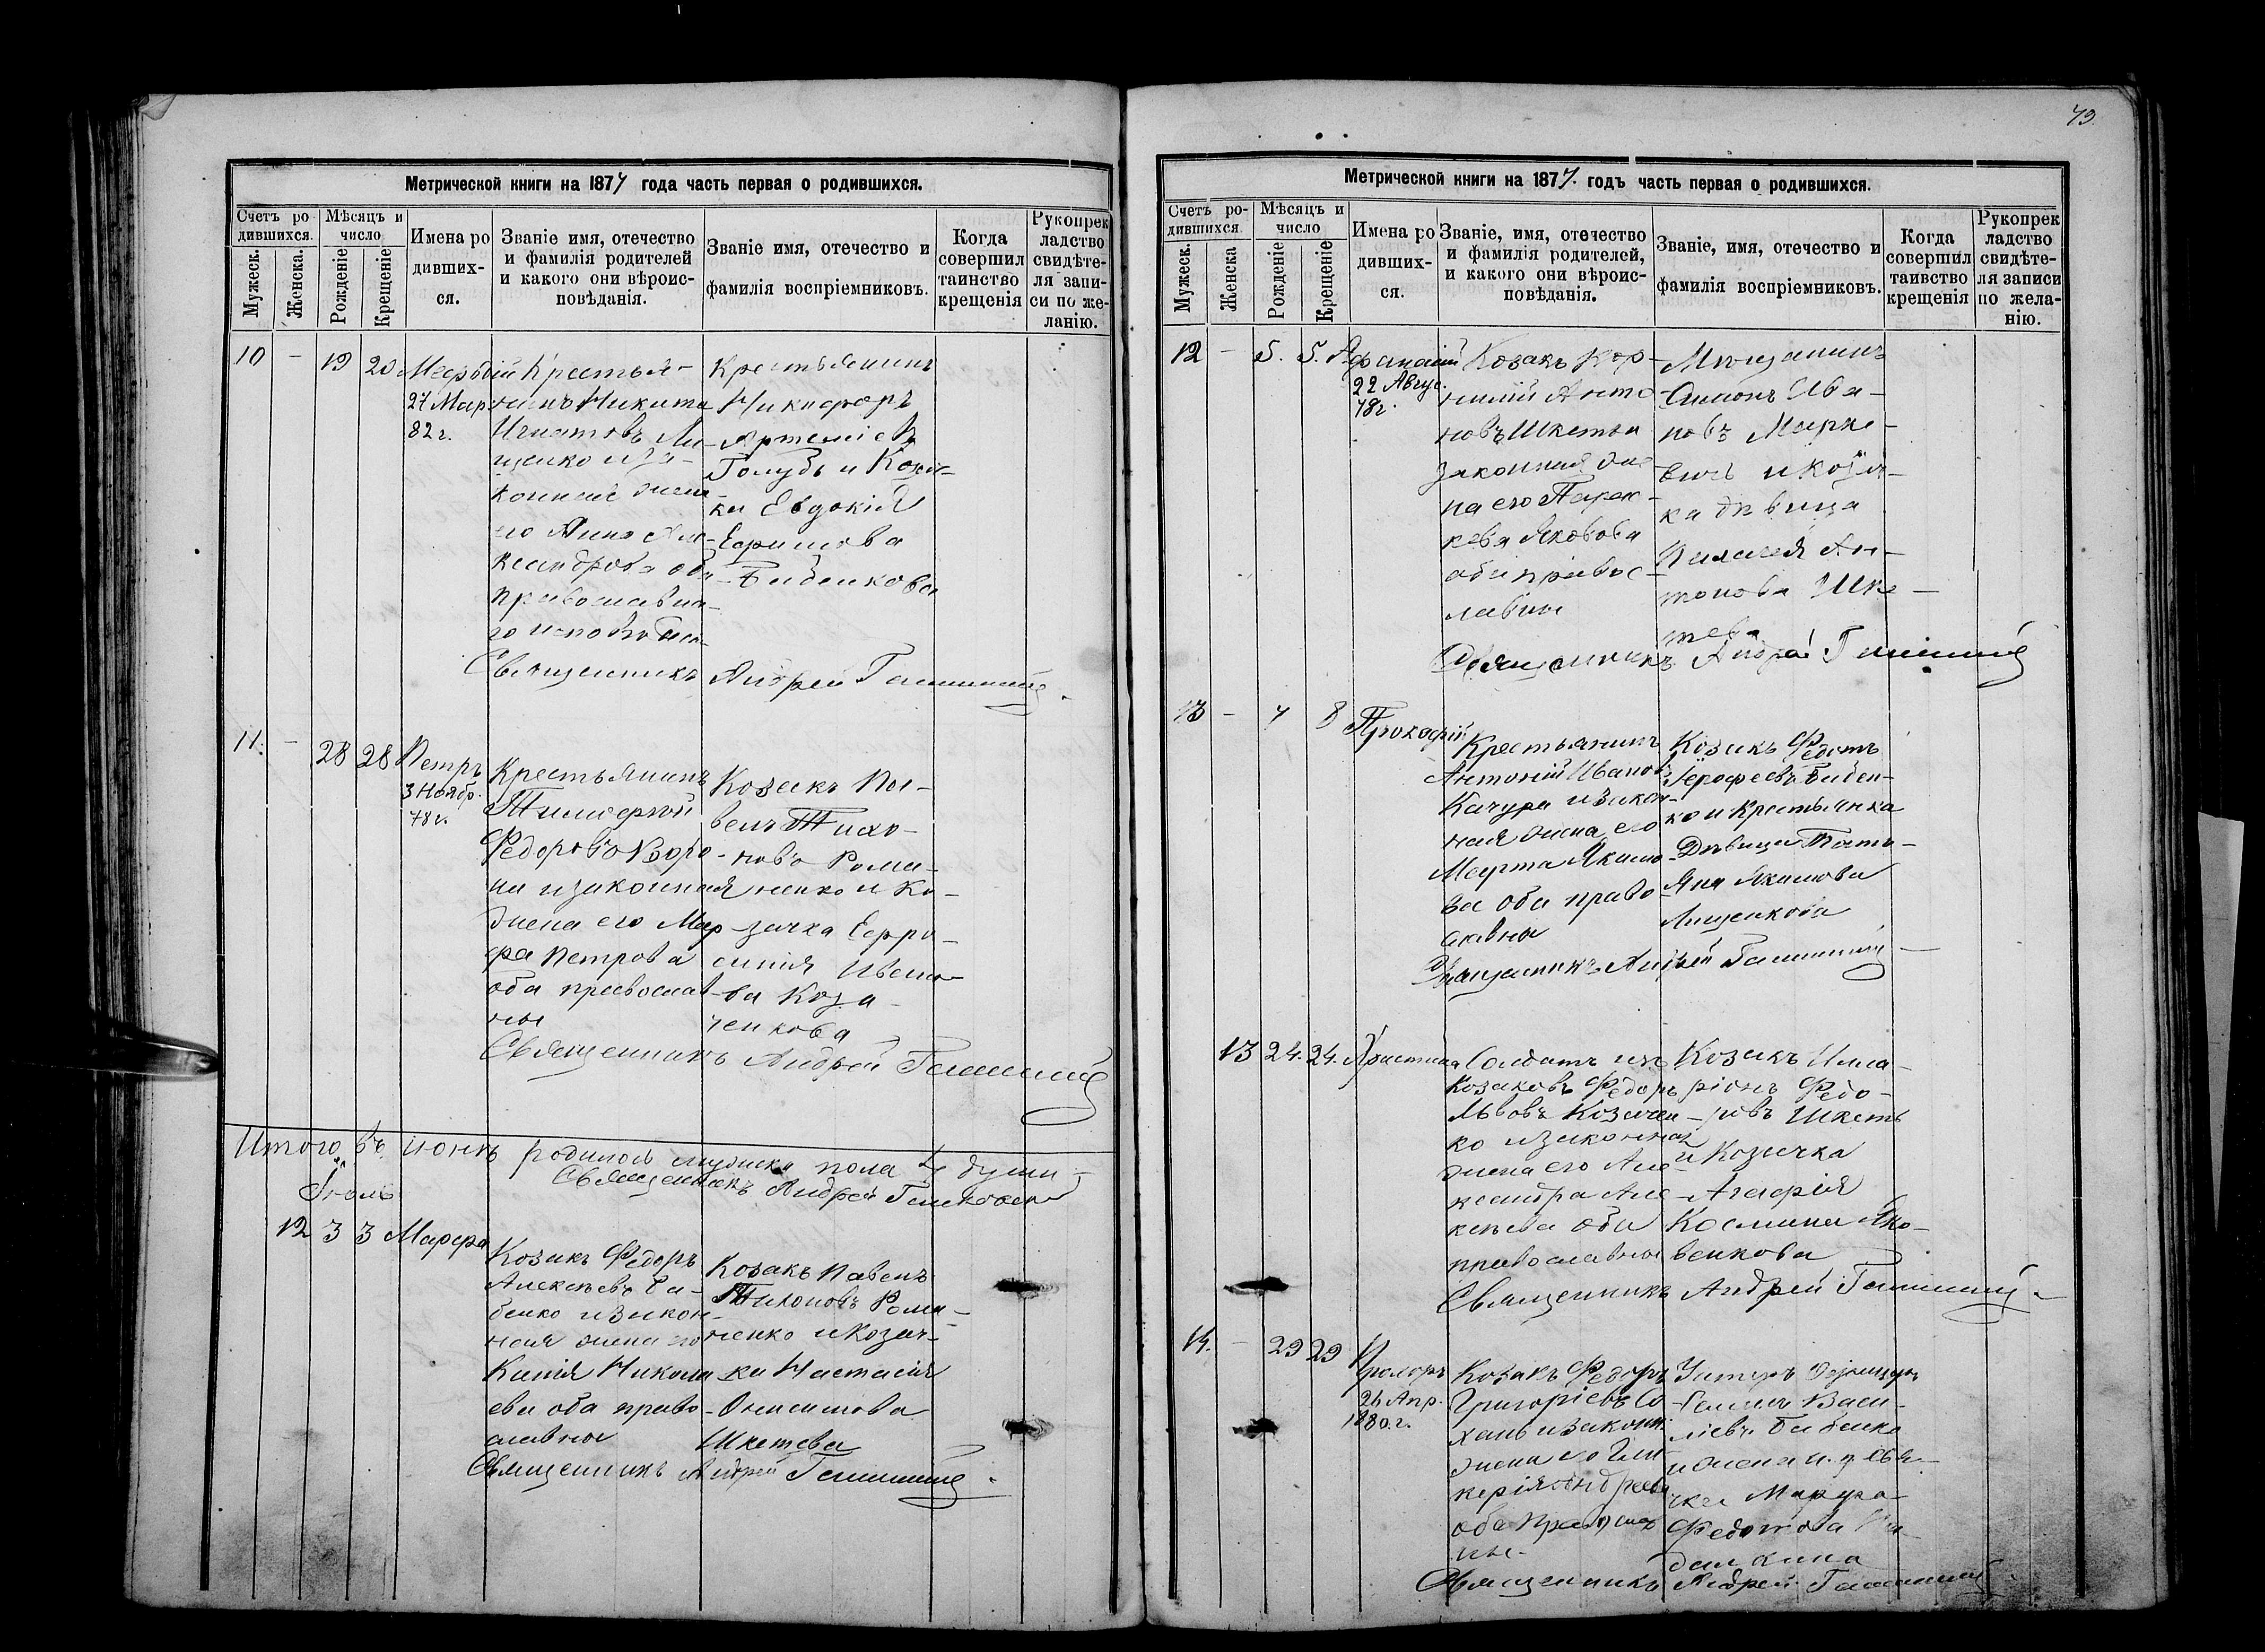 79
Метрической книги на 1877 года часть первая о родившихся.
Счетъ ро
дившихся.
Мѣсяцъ и
число
Мужеск.
Женска.
Рожденіе
Крещеніе
Имена ро
дивших-
ся.
Званіе имя, отечество
и фамилія родителей
и какого они вѣроис-
повѣданія.
Званіе имя, отечество и
фамилія воспріемниковъ.
Когда
совершил
таинство
крещенія
Рукопрек
ладство
свидѣте-
ля запи-
си по же-
ланію.
10 - 19 20
27 Мар.
82 г.
Крестья-
нинъ Никита
Игнатовъ Ли-
щенко и за-
конная жена
его Анна Але-
ксандрова оба
православна-
го исповѣдан.
Крестьянинъ
Никифоръ
Артеміевъ
Голубь и Козач-
ка Евдокія
Ефимова
Бабенкова
Священникъ Андрей
11. - 28 28 Петръ
3 Ноябр.
78 г.
Крестьянинъ
Тимофей
Федоровъ Воро-
на и законная
жена его Мар-
фа Петрова
оба православ-
ны
Козакъ Па-
велъ Тихо-
новъ Рома-
ненко и Ко-
зачка Ефро-
синія Ивано-
ва Коза-
ченкова
Священникъ Андрей
Итого въ іюнѣ родилось мужска пола 4 души
Священникъ Андрей
Іюль
12 3 3 Марфа
Козакъ Федоръ
Алексѣевъ Ба-
бенко и закон-
ная жена его
Никола-
ева оба право-
славны
Козакъ Павелъ
Тихоновъ Рома-
ненко и Козач-
ка Настасія
Онисимова
Шкетева
Священникъ Андрей
Метрической книги на 1877. годъ часть первая о родившихся.
Счетъ ро-
дившихся
Мѣсяцъ и
число
Мужеск.
Женска
Рожденіе
Крещеніе
Имена ро
дивших-
ся.
Званіе, имя, отечество
и фамилія родителей,
и какого они вѣроис-
повѣданія.
Званіе, имя, отечество и
фамилія воспріемниковъ.
Когда
совершил
таинство
крещенія
Рукопрек
ладство
свидѣте-
ля записи
по жела-
нію.
12 - 5. 5. Афанасій
22 Авгус.
78 г.
Козакъ Кор-
нилій Анто-
новъ Шкеть и
законная же-
на его Парас-
кева Яковова
оба правос-
лавны
Мѣщанинъ
Ива-
новъ Марке-
вичъ и козач-
ка дѣвица
Пелагея Ан-
тонова Шке-
тева
Священникъ Андрей
13 - 7 8 Прокофій
Крестьянинъ
Антоній Иванов
Качура и закон-
ная жена его
Марта Якимо-
ва оба право-
славны
Козакъ Федотъ
Ерофеевъ Бабен-
ко и Крестьянка
Дѣвица Татья-
на Якимова
Лищенкова
Священникъ Андрей
13 24. 24. Христина
Солдатъ изъ
Козаковъ Федоръ
Львовъ Козачен-
ко и законная
жена его Але-
ксандра Але-
ксѣева оба
православны
Козакъ Илла-
ріонъ Федо-
ровъ Шкеть
и Козачка
Агафія
Космина Яко-
венкова
Священникъ Андрей
14. - 29 29
26 Апр.
1880. г.
Козакъ Федоръ
Григоріевъ Со-
хань и законн.
жена его Гли-
керія Андреева
оба православ-
ны.
Унтеръ Офицеръ
Васи-
ліевъ Бабенко
и жена
Марфа
Федотова
Священникъ Андрей